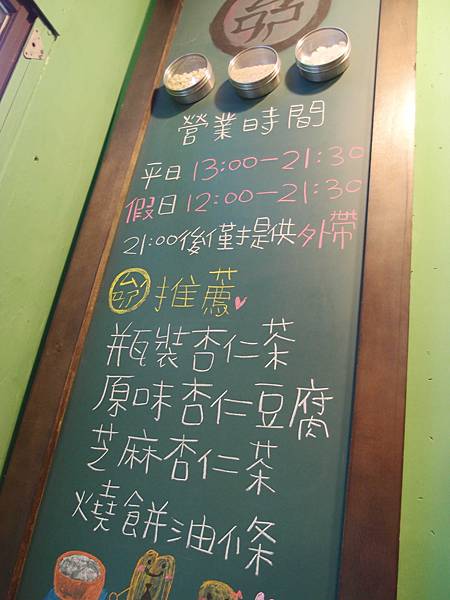 營業時間
平日 13:00－21:30
假日 12:00－21:30
21:00後僅提供外帶
推薦
瓶裝杏仁茶
原味杏仁豆腐
芝麻杏仁茶
燒餅油條